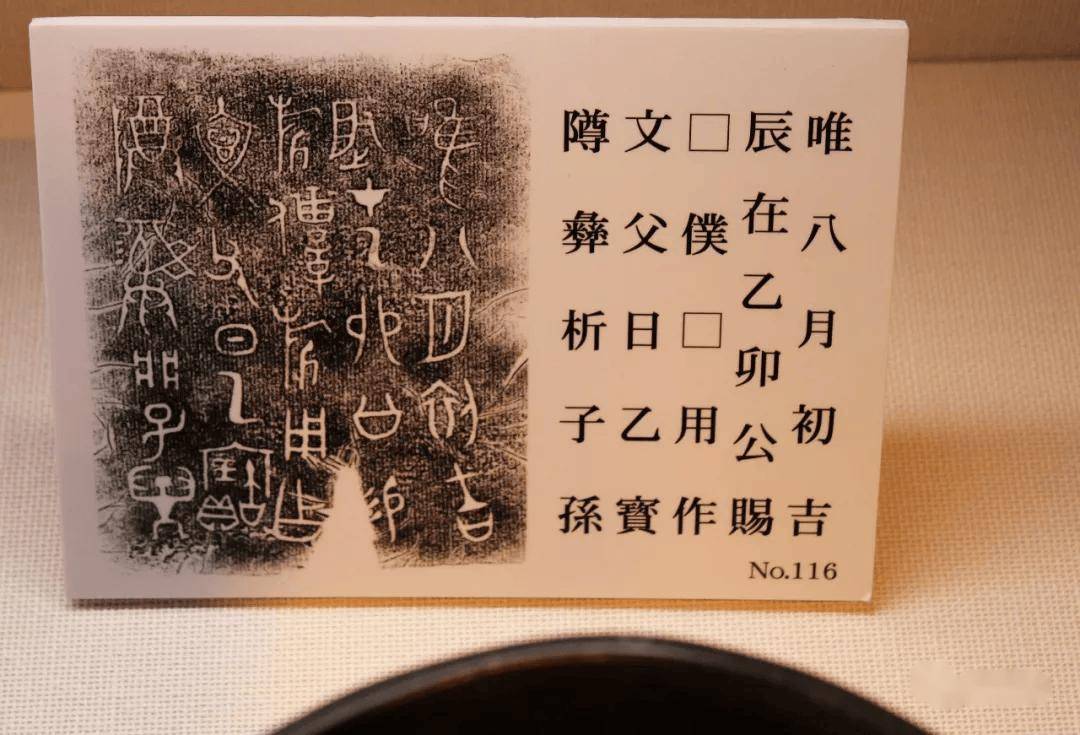 唯八月初吉
辰在乙卯公賜
□僕□用作
文父日乙寶
隣彝析子孫
No.116